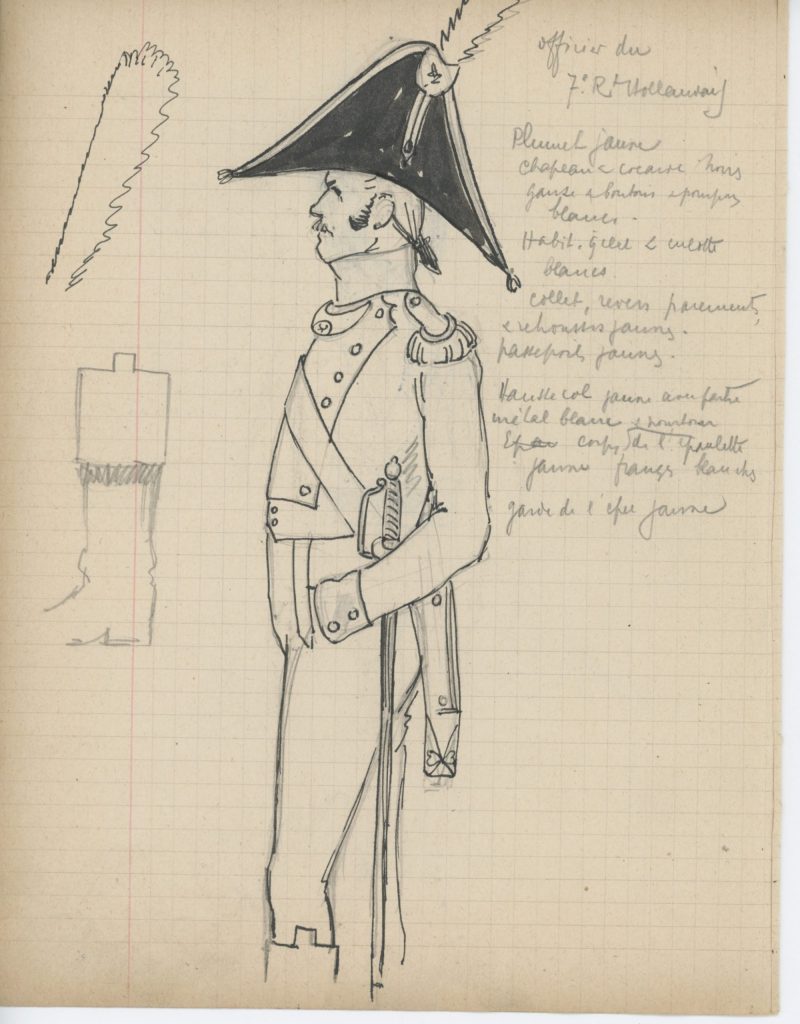 officier du
7e Rt Hollandais
Plumet jaune
chapeau & cocarde noirs
ganse & boutons & pompon
blancs.
Habit, gilet & culotte
blancs
collet, revers parements,
& retroussis jaunes.
passepoils jaunes.
Hausse col jaune
métal blanc &
corps de l'épaulette
jaune franges blanches
garde de l'épée jaune